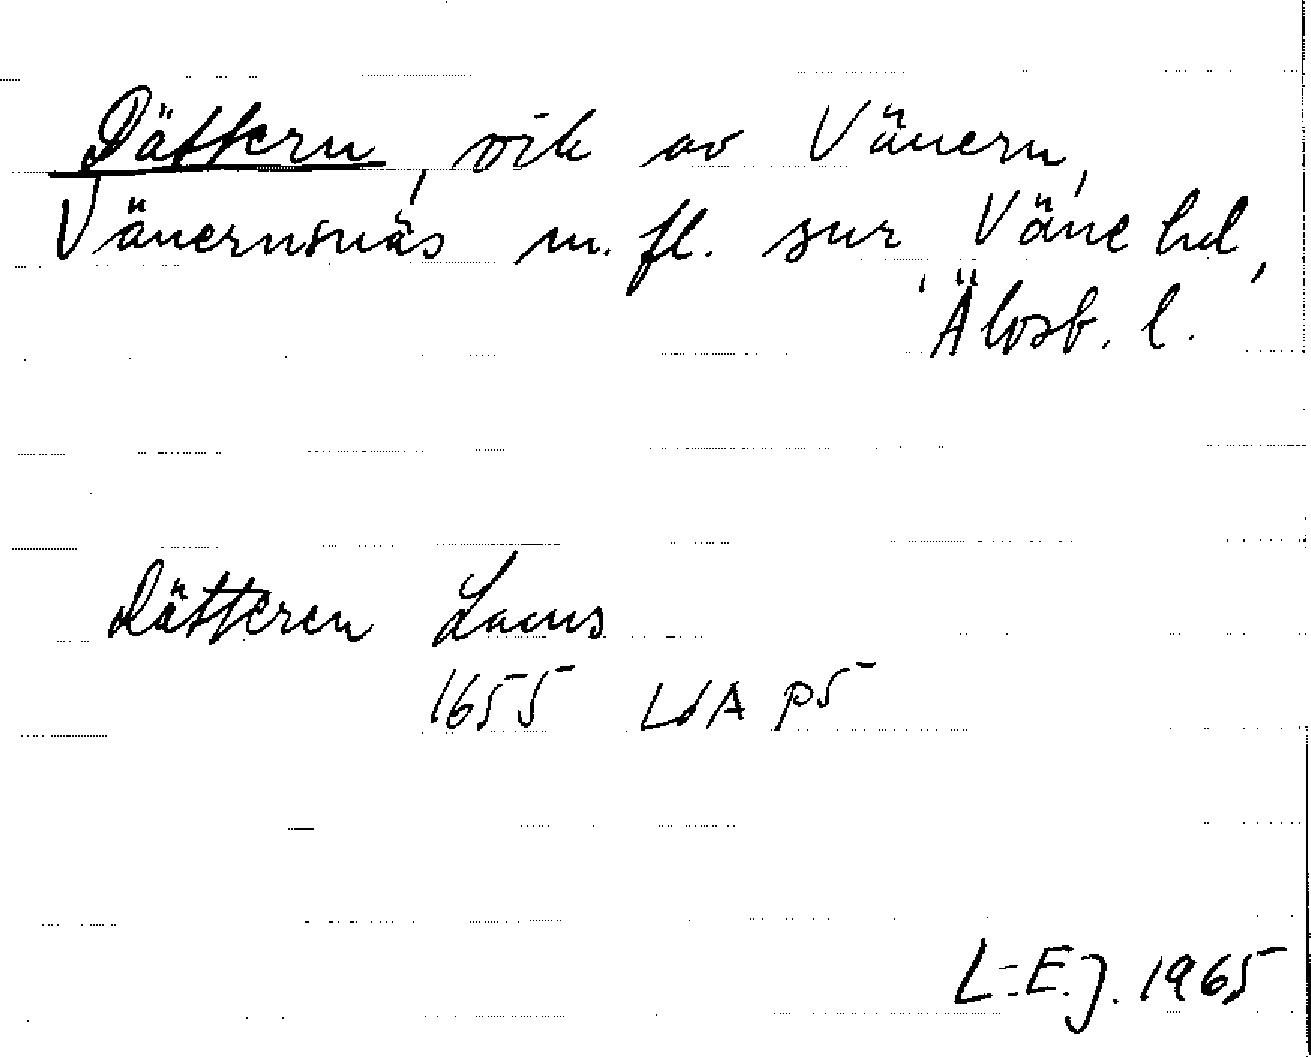 Dättern, vik av Vänern,
Vänernsnäs m.fl. snr Väne hd,
Älvsb. l.
Dätteren Lacus
1655 LSA P5
L-E.J. 1965